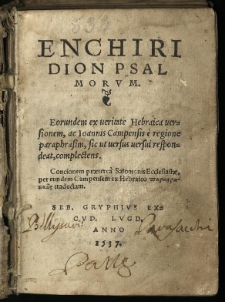 ENCHIRI
DION PSAL
MORVM.
Eorundem ex veritate Hebraica ver-
sionem, ac Ioannis Campensis è regione
paraphrasim, sic ut versus versui respon-
deat, complectens.
Concionem præterea Salomonis Ecclesiastæ,
per eundem Campensem ex Hebraico
traductam.
SEB. GRYPHIVS EX-
CVD. LVGD.
ANNO
1537.